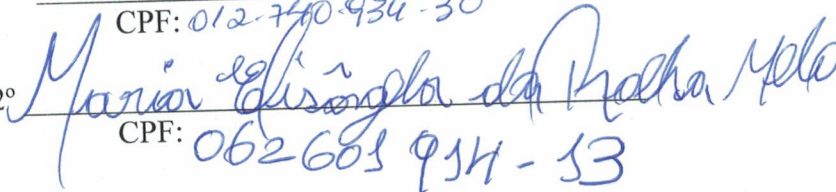 CPF: 012.740.934-30
2º Maria Elisângela da Rocha Melo
CPF: 062601 914-13